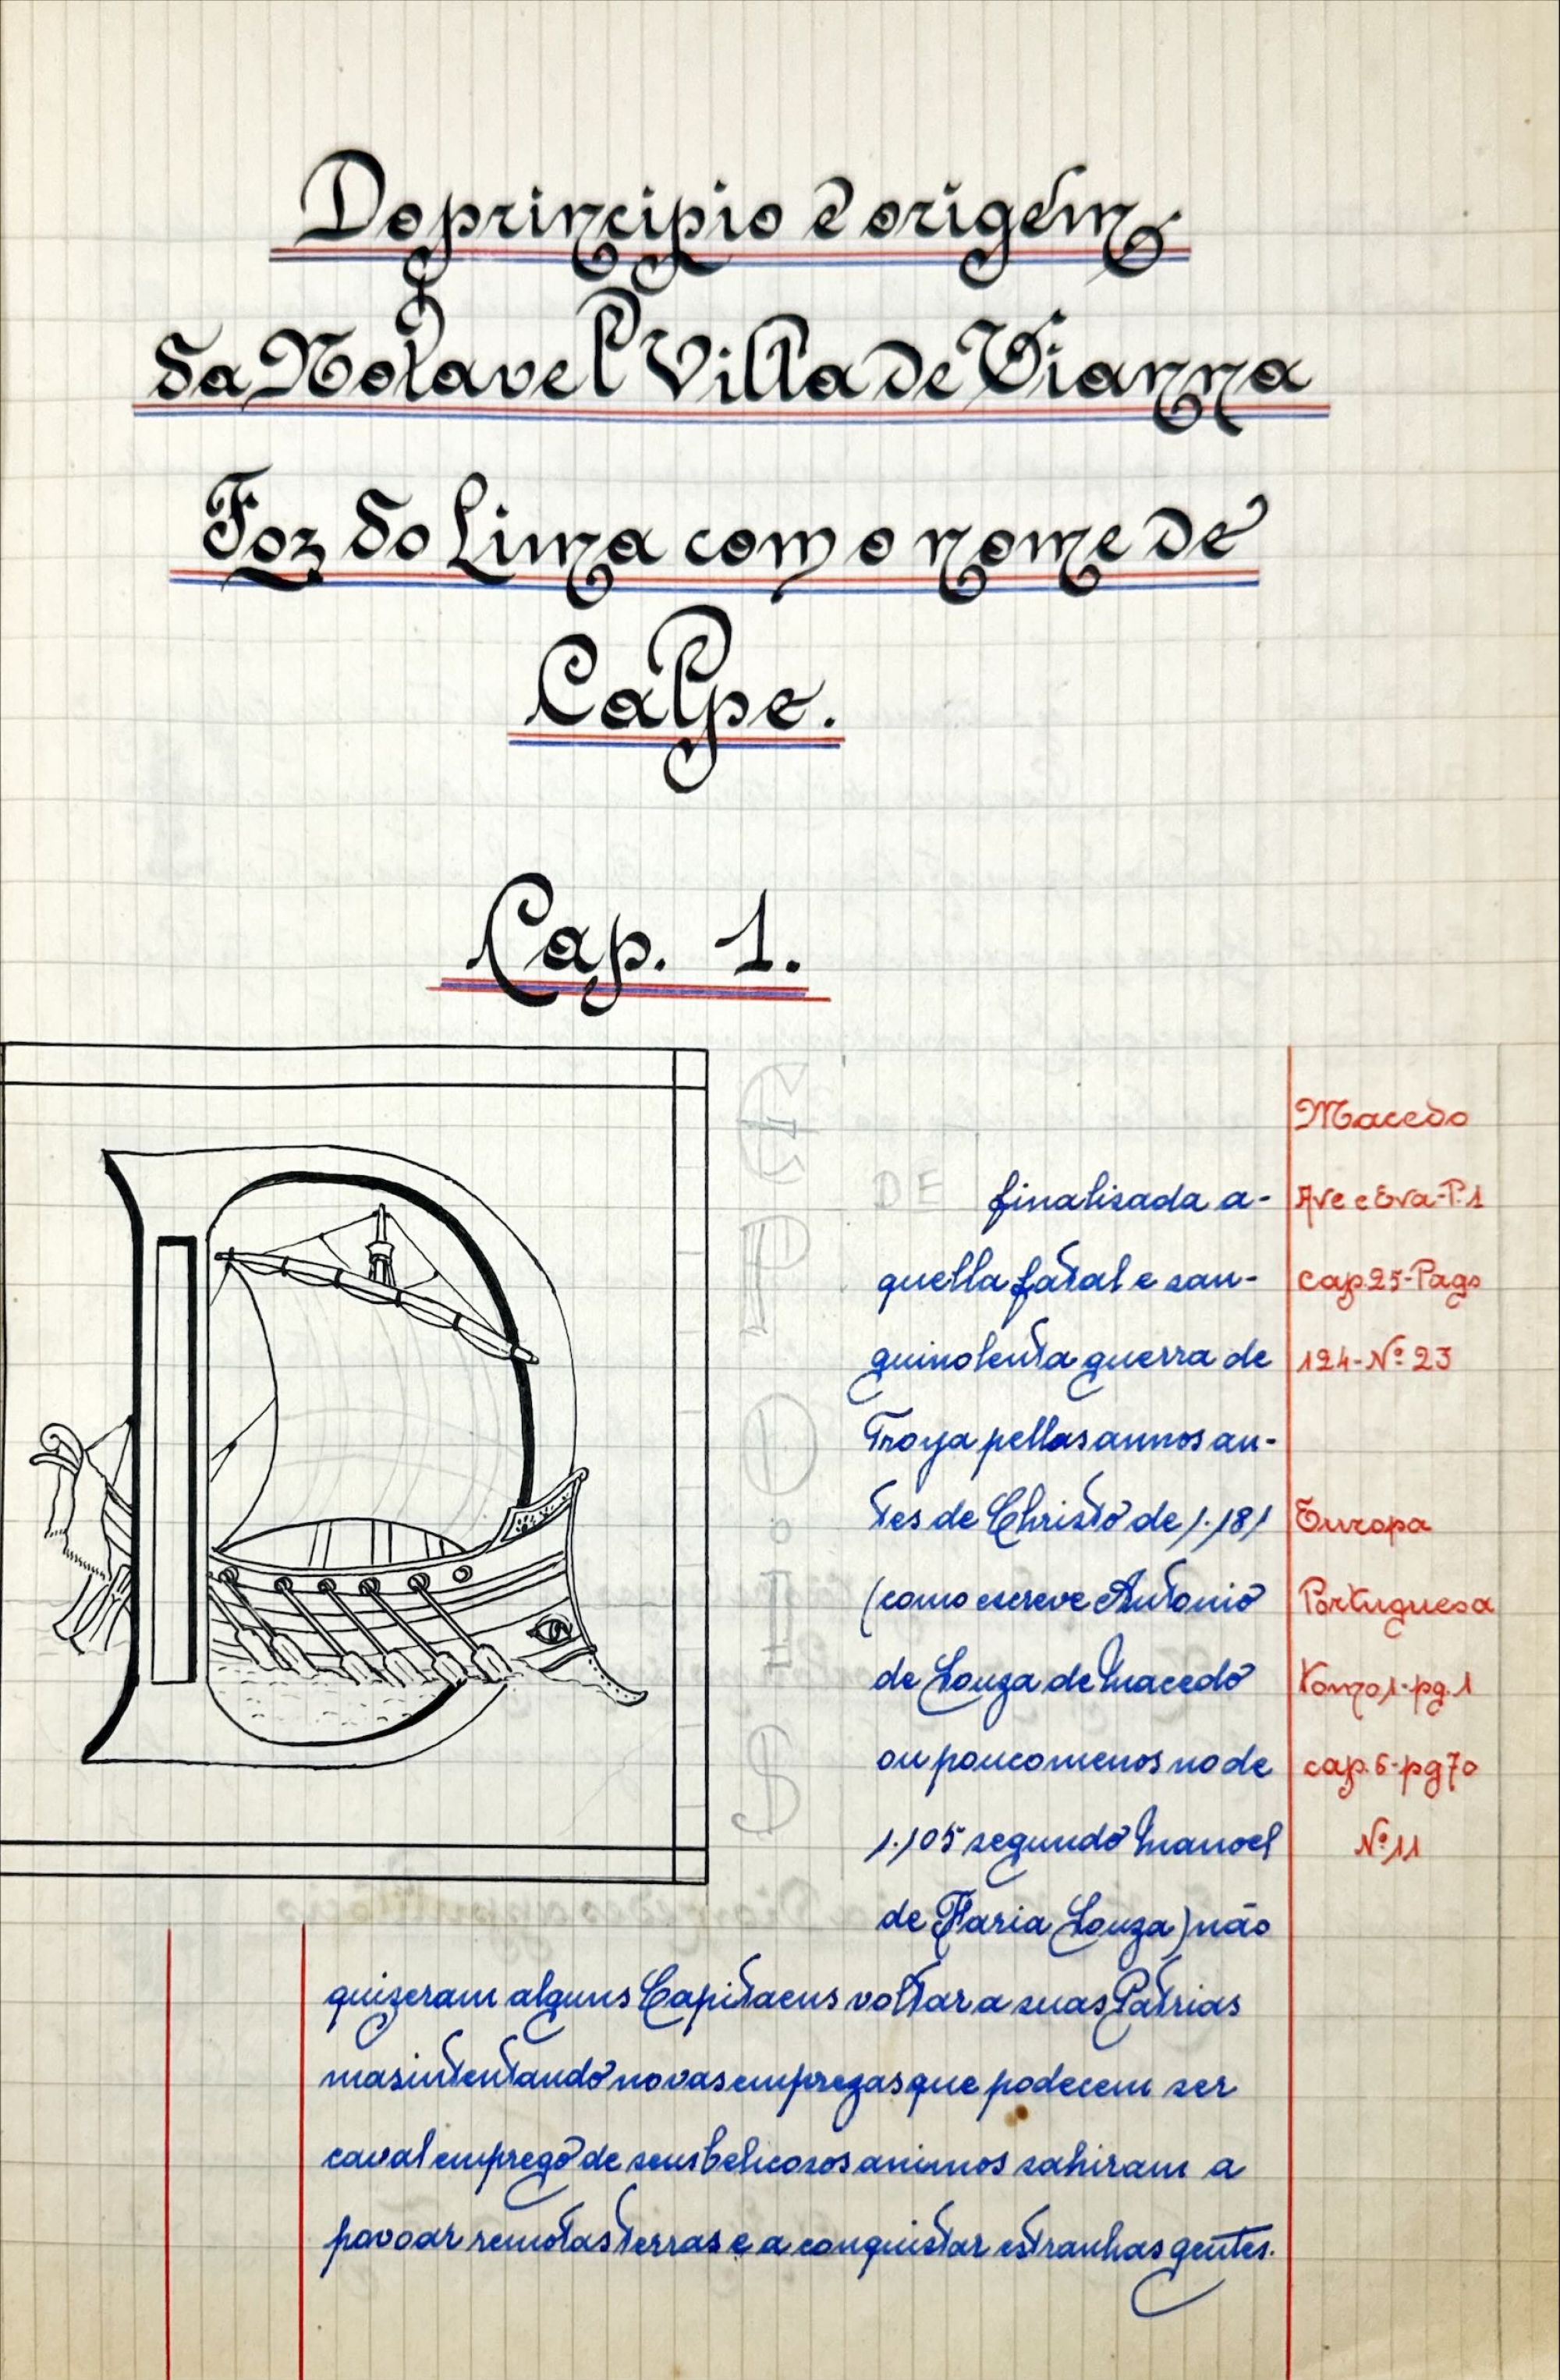 Do principio e origem
da Notavel Villa de Vianna
Foz do Lima com o nome de
Calpe.
Cap. 1.
D
finalisada a-
quella fatal e san-
guinolenta guerra de
Troya pellas annos an-
tes de Christo de 1.181
(como escreve Antonio
de Souza de Macedo
ou pouco menos no de
1.105 segundo Manoel
de Faria Souza) não
quizeram alguns Capitaens voltar a suas Patrias
mas intentando novas emprezas que podecem ser
caval emprego de seus belicosos animos sahiram a
povoar remotas terras e a conquistar estranhas gentes.
Macedo
Ave e Eva-P.1
cap.25-Pags
124-Nº 23
Europa
Portuguesa
Tomo 1-pg.1
cap.6-pg70
Nº 11
DE